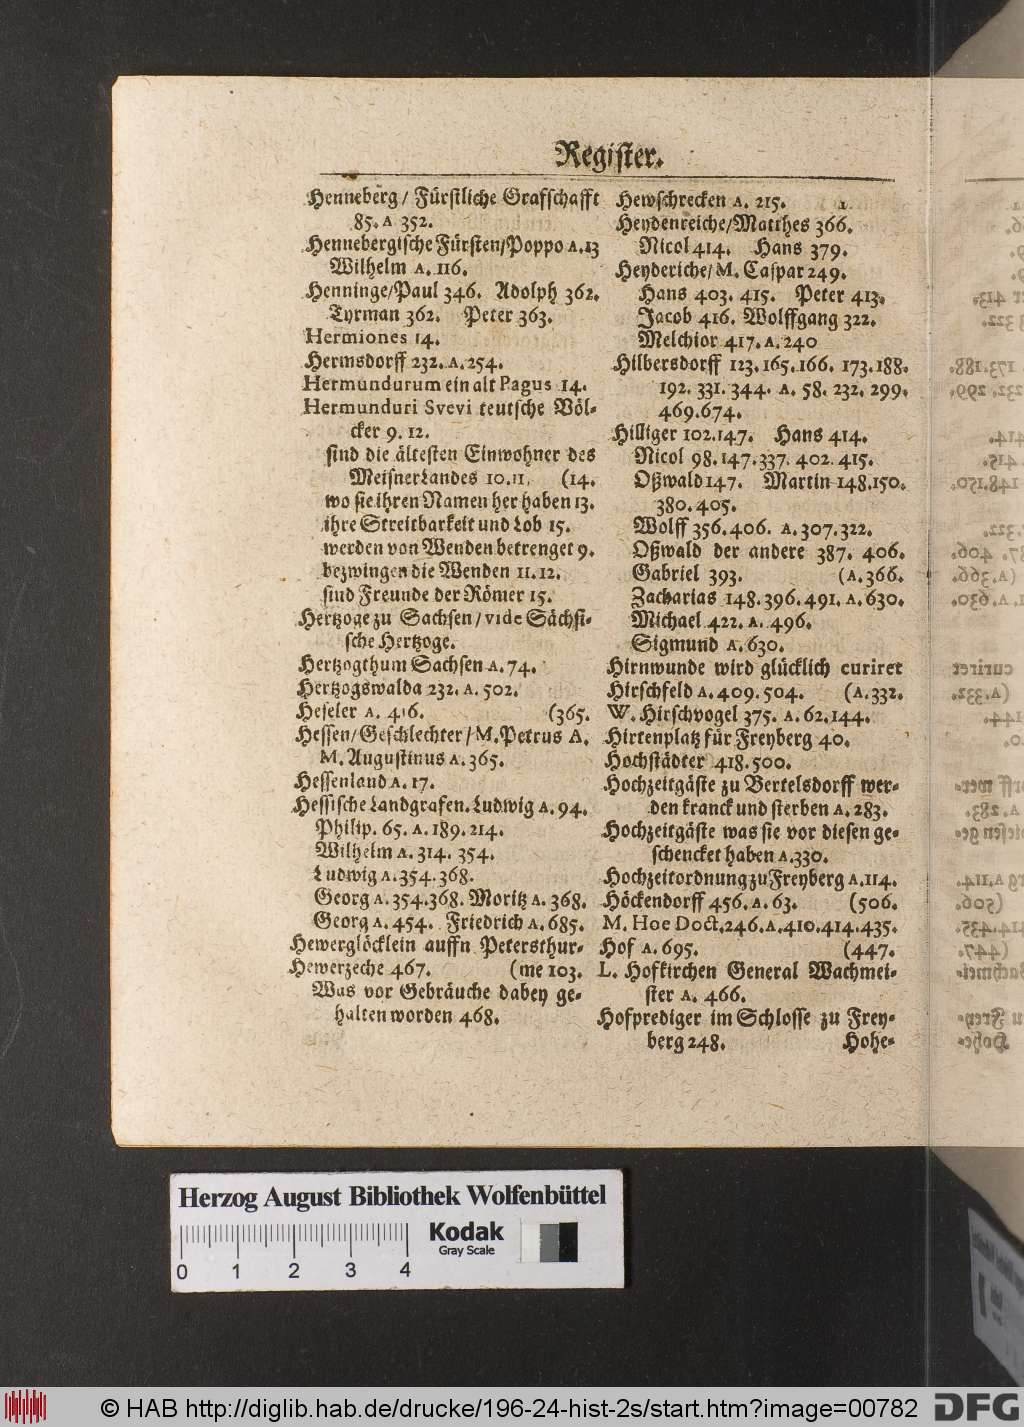 Register.
Henneberg / Fürstliche Grafschafft
85. A 352.
Hennebergische Fürsten/Poppo A. 13
Wilhelm A. 116.
Henninge/Paul 346. Adolph 362.
Tyrman 362. Peter 363.
Hermiones 14.
Hermsdorff 232. A. 254.
Hermundurum ein alt Pagus 14.
Hermunduri Svevi teutsche Völ-
cker 9. 12.
sind die ältesten Einwohner des
Meisnerlandes 10. 11. (14.
wo sie ihren Namen her haben 13.
ihre Streitbarkeit und Lob 15.
werden von Wenden betrenget 9.
bezwingen die Wenden 11. 12.
sind Freunde der Römer 15.
Hertzoge zu Sachsen / vide Sächsi-
sche Hertzoge.
Hertzogthum Sachsen A. 74.
Hertzogswalda 232. A. 502.
Heseler A. 416. (365.
Hessen/Geschlechter / M. Petrus A.
M. Augustinus A. 365.
Hessenland A. 17.
Hessische Landgrafen. Ludwig A. 94.
Philip. 65. A. 189. 214.
Wilhelm A. 314. 354.
Ludwig A. 354. 368.
Georg A. 354. 368. Moritz A. 368.
Georg A. 454. Friedrich A. 685.
Hewerglöcklein auffn Petersthur-
Hewerzeche 467. (me 103.
Was vor Gebräuche dabey ge-
halten worden 468.
Hewschrecken A. 215.
Heydenreiche/Matthes 366.
Nicol 414. Hans 379.
Heyderiche/ M. Caspar 249.
Hans 403. 415. Peter 413.
Jacob 416. Wolffgang 322.
Melchior 417. A. 240
Hilbersdorff 123. 165. 166. 173. 188.
192. 331. 344. A. 58. 232. 299.
469. 674.
Hilliger 102. 147. Hans 414.
Nicol 98. 147. 337. 402. 415.
Oßwald 147. Martin 148. 150.
380. 405.
Wolff 356. 406. A. 307. 322.
Oßwald der andere 387. 406.
Gabriel 393. (A. 366.
Zacharias 148. 396. 491. A. 630.
Michael 422. A. 496.
Sigmund A. 630.
Hirnwunde wird glücklich curiret
Hirschfeld A. 409. 504. (A. 332.
W. Hirschvogel 375. A. 62. 144.
Hirtenplatz für Freyberg 40.
Hochstädter 418. 500.
Hochzeitgäste zu Bertelsdorff wer-
den kranck und sterben A. 283.
Hochzeitgäste was sie vor diesen ge-
schencket haben A. 330.
Hochzeitordnung zu Freyberg A. 114.
Höckendorff 456. A. 63. (506.
M. Hoe Doct. 246. A. 410. 414. 435.
Hof A. 695. (447.
L. Hofkirchen General Wachmei-
ster A. 466.
Hofprediger im Schlosse zu Frey-
berg 248. Hohe-
Herzog August Bibliothek Wolfenbüttel
Kodak
Gray Scale
0 1 2 3 4
© HAB http://diglib.hab.de/drucke/196-24-hist-2s/start.htm?image=00782
DFG